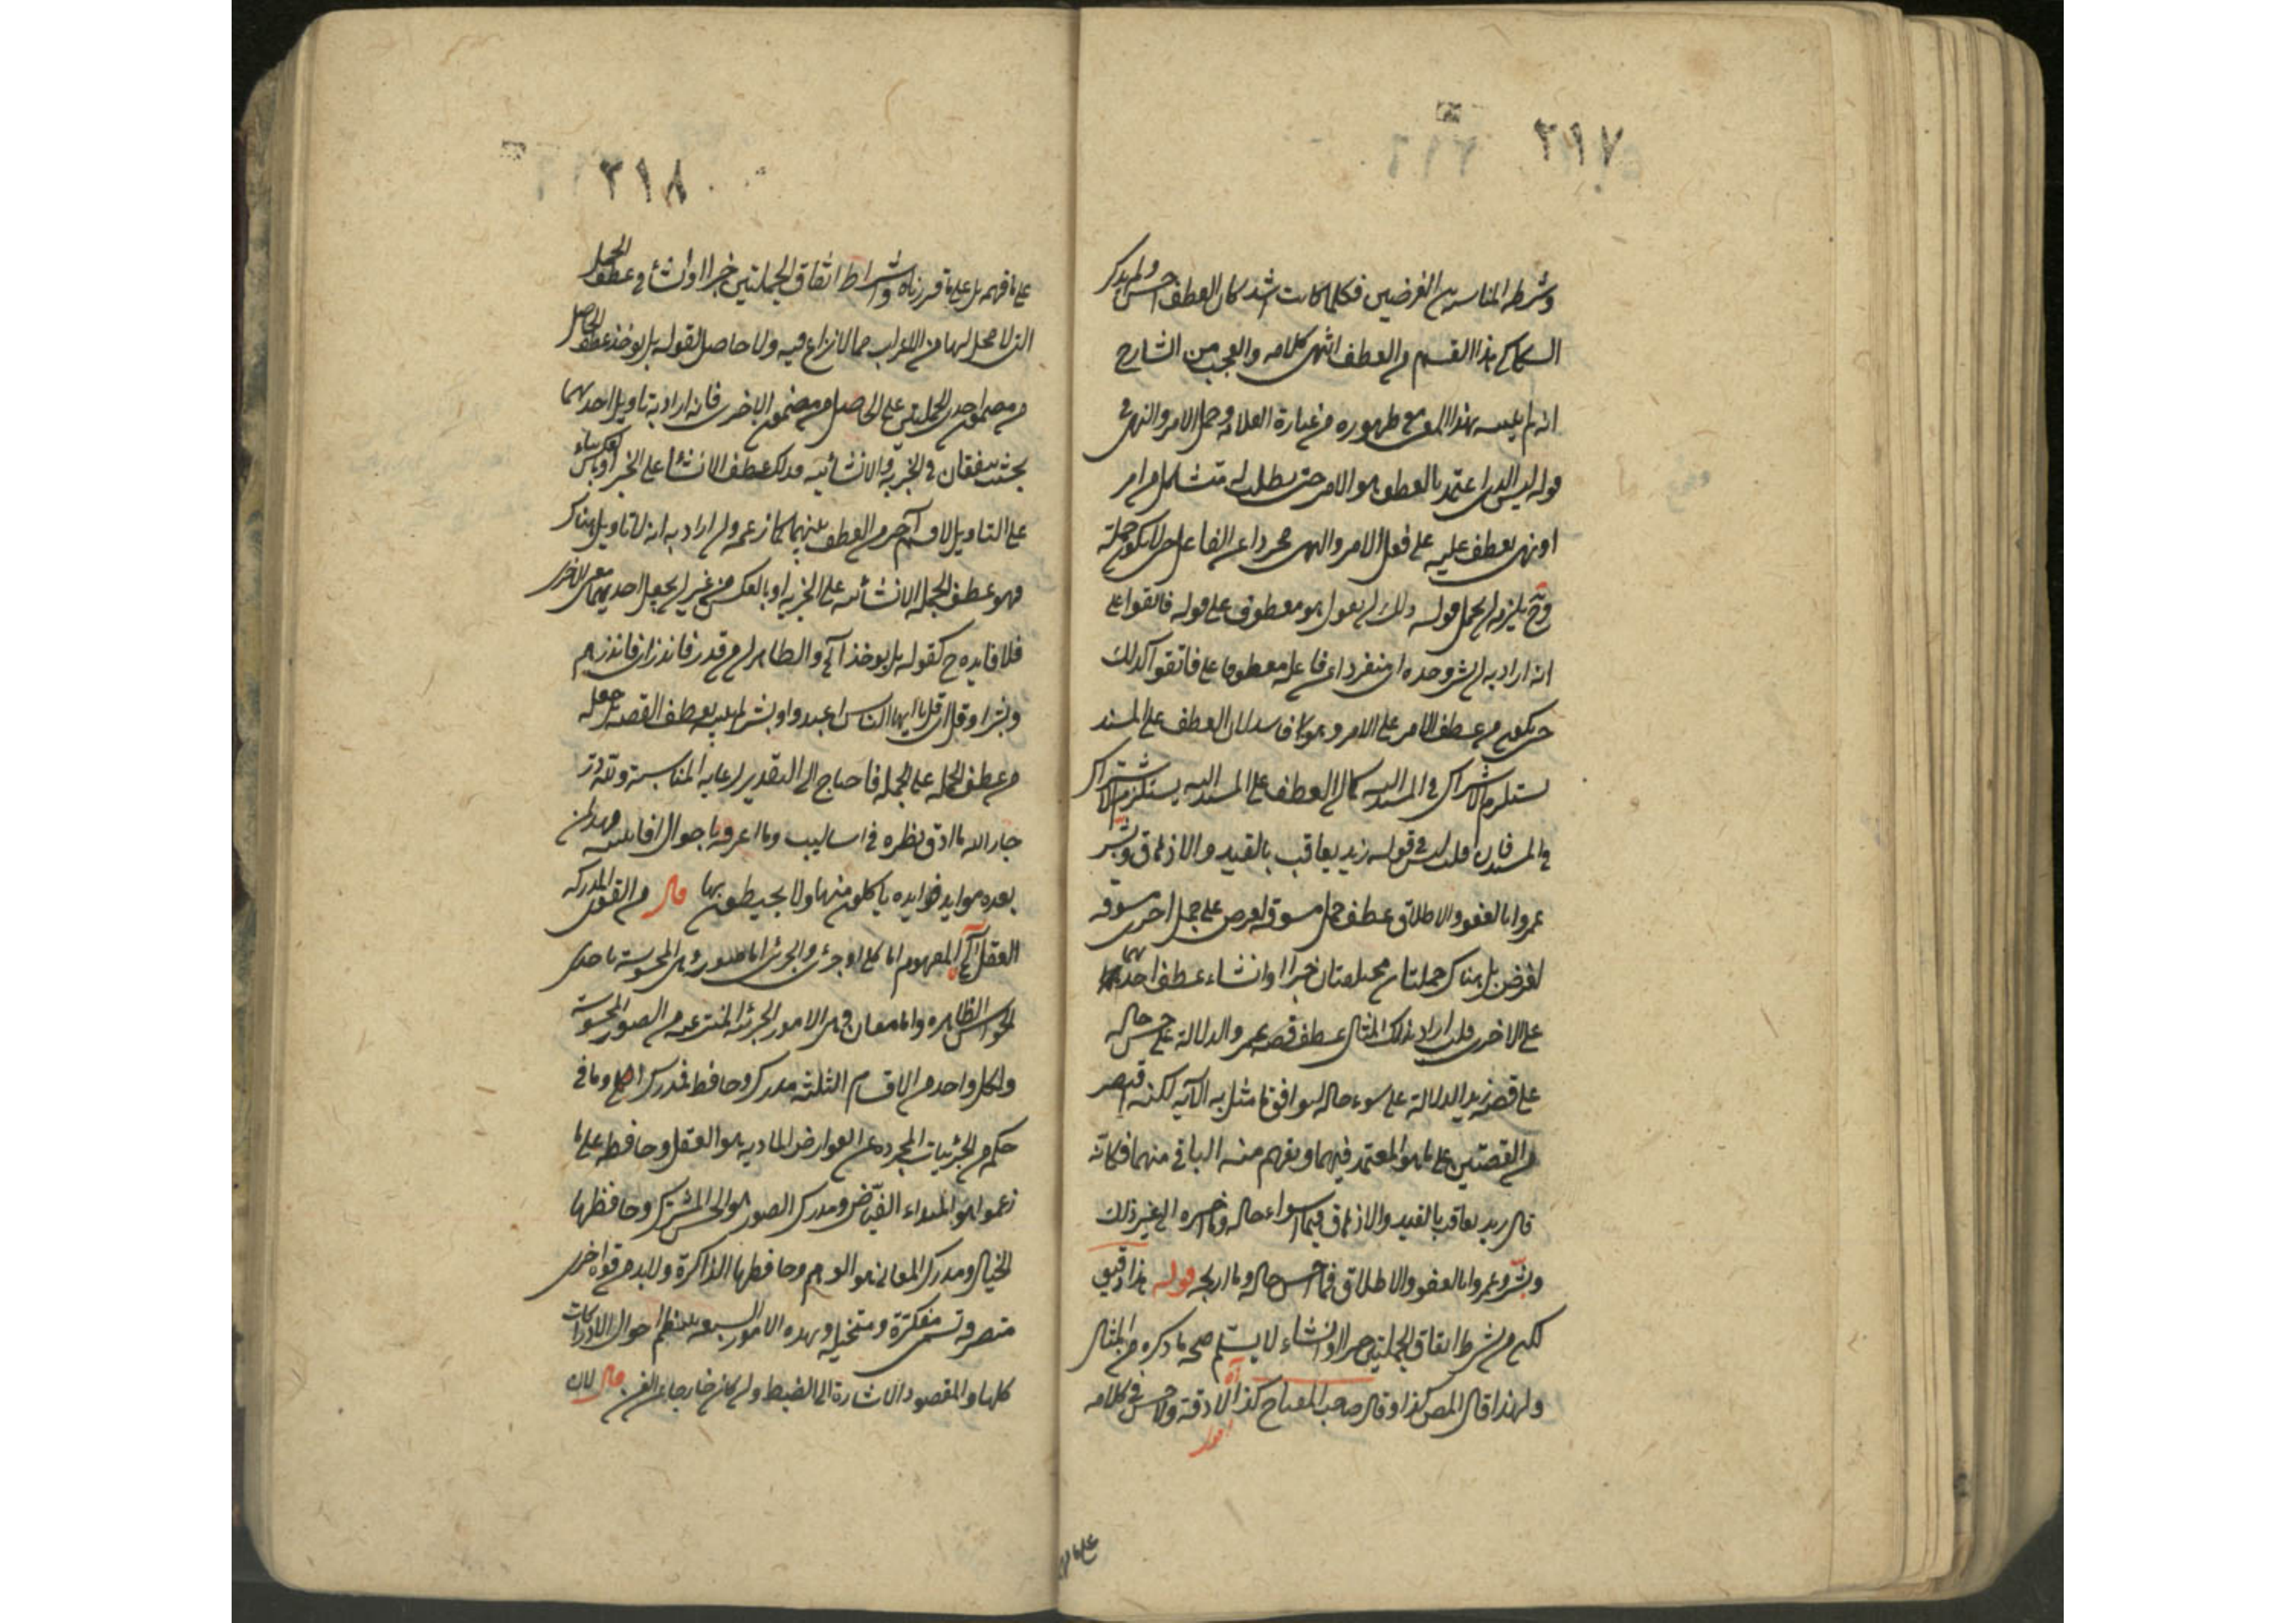 ٢١٧
وشرطه المناسبة بين الغرضين فكلما كانت اشد كان العطف احسن ولم يذكر
السكاكي هذا القسم من العطف انتهى كلامه والعجب من الشارح
انه لم يتنبه بهذا المعنى مع ظهوره من عبارة العلامة وحمل الامر والنهي في
قوله ليس الذي اعتمد بالعطف هو الامر حتى يطلب له مشاكل من امر
او نهي يعطف عليه على فعل الامر والنهي مجردا عن الفاعل حتى لا يكون جملة
وح يلزم ان يحمل قوله ولك ان تقول هو معطوف على قوله فاتقوا على
انه اراد به ان بشر وحده اي منفردا عن فاعله معطوف على فاتقوا كذلك
حتى يكون من عطف الامر على الامر وهو فاسد لان العطف على المسند
يستلزم الاشتراك في المسند اليه كما ان العطف على المسند اليه يستلزم الاشتراك
في المسند فان قلت ليس في قوله زيد يعاقب بالقيد والازهاق وبشر
عمروا بالعفو والاطلاق عطف جمل مسوقة لغرض على جمل اخرى مسوقة
لغرض بل هناك جملتان مختلفتان خبرا وانشاء عطف احديهما
على الاخرى قلت اراد بذلك المثال عطف قصة عمرو الدالة على حسن حاله
على قصة زيد الدالة على سوء حاله ليوافق ما مثل به الآية لكنه اقتصر
من القصتين على ما هو المعتمد فيهما ويفهم منه الباقي منهما فكانه
قال زيد يعاقب بالقيد والازهاق فما اسواء حاله وما اخسره الى غير ذلك
وبشر عمروا بالعفو والاطلاق فما احسن حاله وما اربحه قوله هذا دقيق
لكن من شرط اتفاق الجملتين خبرا وانشاء لا يسلم صحة ما ذكره من المثال
ولهذا قال المص كذا وقال صاحب المفتاح كذا آه اقول لا دقة ولا حسن في كلامه
على ما فهمه
٢١٨
على ما فهمه بل على ما قررناه واشتراط اتفاق الجملتين خبرا وانشاء في عطف الجمل
التي لا محل لها من الاعراب مما لا نزاع فيه ولا حاصل لقوله بل يؤخذ عطف الحاصل
من مضمون احدى الجملتين على الحاصل من مضمون الاخرى فانه ان اراد به تاويل احديهما
بحيث يتفقان في الخبرية والانشائية فذلك عطف الانشاء على الخبر او بالعكس بناء
على التاويل لا قسم آخر من العطف بينهما كما زعمه وان اراد به انه لا تاويل هناك
فهو عطف الجملة الانشائية على الخبرية او بالعكس من غير ان يجعل احديهما بمعنى الاخرى
فلا فايدة ح لقوله بل يؤخذ آه والظاهر ان من قدر فانذر اي فانذرهم
وبشر او قل اي قل يا ايها الناس اعبدوا وبشر لم ينتبه بعطف القصة بل جعله
من عطف الجملة على الجملة فاحتاج الى التقدير لرعاية المناسبة ولله در
جار الله ما ادق نظره في اساليب وما اعرفه باحوال افانينه مهد لمن
بعده موايد فوايده ياكلون منها ولا يحيطون بها قال من القوى المدركة
العقل آه المفهوم اما كلي او جزئي والجزئي اما صور وهي المحسوسة باحدى
الحواس الظاهرة واما معان وهي الامور الجزئية المنتزعة من الصور المحسوسة
ولكل واحد من الاقسام الثلثة مدرك وحافظ فمدرك الكلي وما في
حكمه من الجزئيات المجردة عن العوارض المادية هو العقل وحافظه على ما
زعموا هو المبداء الفياض ومدرك الصور هو الحس المشترك وحافظها
الخيال ومدرك المعاني هو الوهم وحافظها الذاكرة ولا بد من قوة اخرى
متصرفة تسمى مفكرة ومتخيلة وبهذه الامور السبعة ينتظم احوال الادراكات
كلها والمقصود الاشارة الى الضبط وان كان خارجا عن الفن قال لان